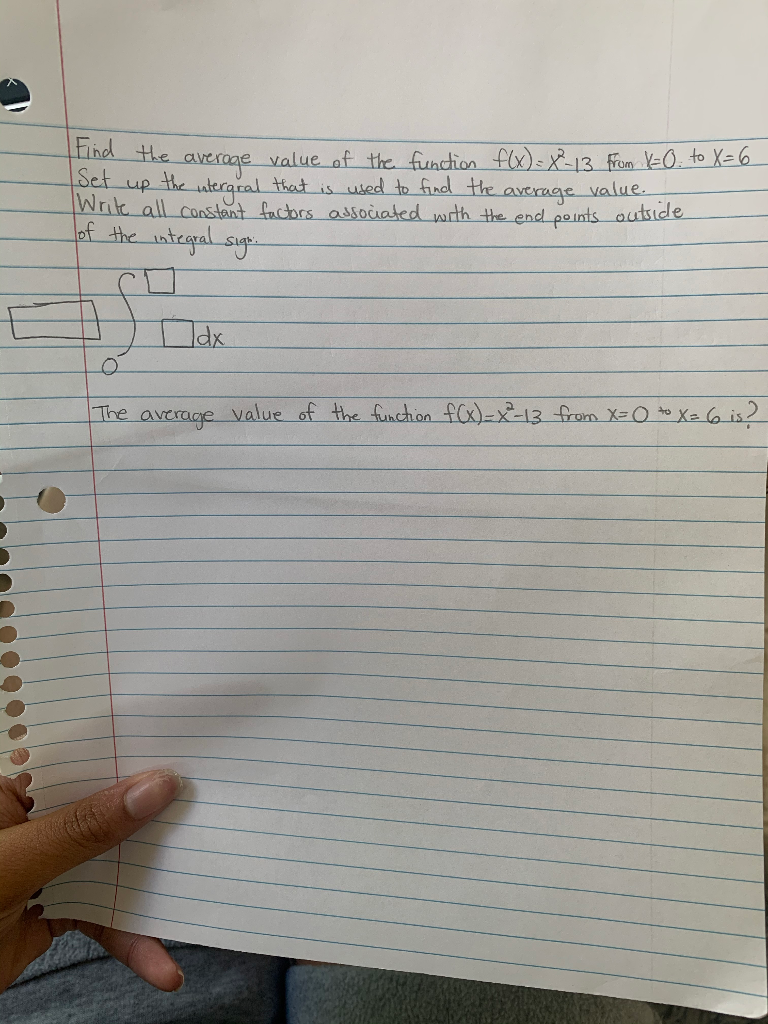 Find the average value of the function f(x)=x²-13 From x=0. to x=6
Set up the intergral that is used to find the average value.
Write all constant factors associated with the end points outside
of the integral sign.
∫ dx
0
The average value of the function f(x)=x²-13 from x=0 to x=6 is?